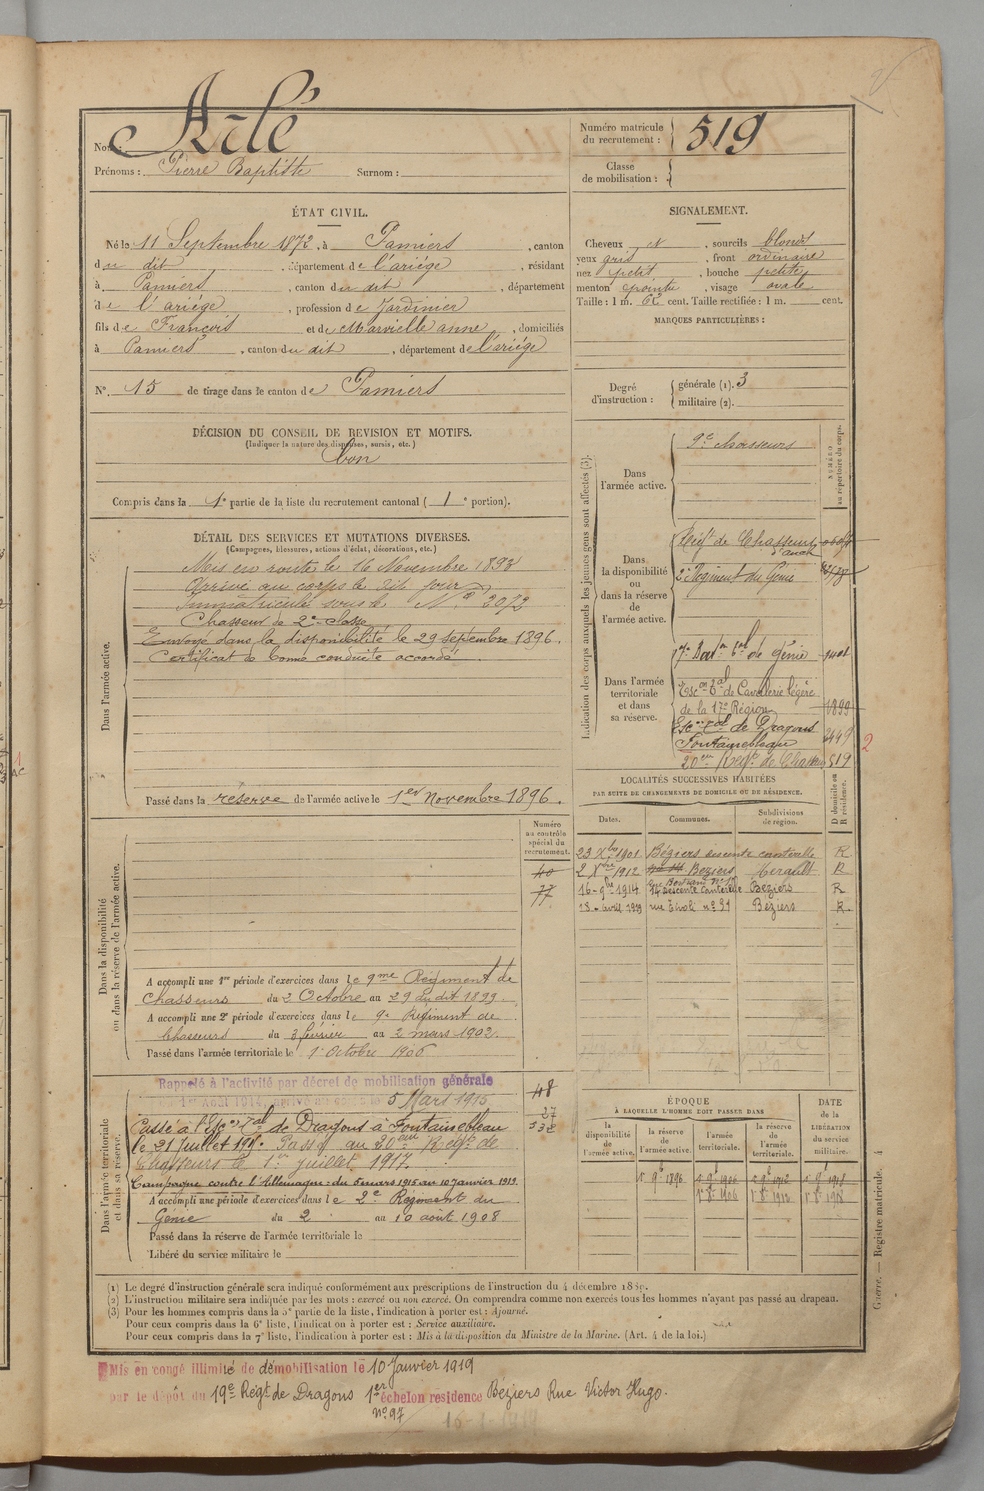 Nom : Arlé
Prénoms : Pierre Baptiste Surnom :
Numéro matricule du recrutement : 519
Classe de mobilisation :
ÉTAT CIVIL.
Né le 11 Septembre 1872, à Pamiers, canton
du dit, département de l'ariége, résidant
à Pamiers, canton du dit, département
de l'ariége, profession de Jardinier
fils de François et de Marvielle anne, domiciliés
à Pamiers, canton du dit, département de l'ariége
N° 15 de tirage dans le canton de Pamiers
SIGNALEMENT.
Cheveux N, sourcils blonds
yeux gris, front ordinaire
nez petit, bouche petite
menton pointu, visage ovale
Taille : 1 m. 62 cent. Taille rectifiée : 1 m. cent.
MARQUES PARTICULIÈRES :
Degré d'instruction : générale (1). 3
militaire (2).
DÉCISION DU CONSEIL DE REVISION ET MOTIFS.
(Indiquer la nature des dispenses, sursis, etc.)
bon
Compris dans la 1e partie de la liste du recrutement cantonal ( 1e portion).
DÉTAIL DES SERVICES ET MUTATIONS DIVERSES.
(Campagnes, blessures, actions d'éclat, décorations, etc.)
Dans l'armée active.
Mis en route le 16 Novembre 1893
Arrivé au corps le dit jour
Immatriculé sous le N° 3072
Chasseur de 2e classe
Envoyé dans la disponibilité le 29 septembre 1896.
Certificat de bonne conduite accordé
Passé dans la réserve de l'armée active le 1er Novembre 1896.
Indication des corps auxquels les jeunes gens sont affectés (3).
NUMÉRO au répertoire du corps.
Dans l'armée active.
9e chasseurs
Dans la disponibilité ou dans la réserve de l'armée active.
Regt de Chasseurs d'auch
2e Régiment du Génie
Dans l'armée territoriale et dans sa réserve.
7e Batn tal de génie 1401
Escon tal de Cavalerie légère
de la 17e Région 1899
Escon tal de Dragons
Fontainebleau 2449
20e Regt de Chasseurs 519
2
LOCALITÉS SUCCESSIVES HABITÉES
PAR SUITE DE CHANGEMENTS DE DOMICILE OU DE RÉSIDENCE.
Dates. Communes. Subdivisions de région. D domicile ou R résidence.
23 Xbre 1901 Béziers descente canterelle R
2 Nbre 1912 Beziers Herault R
16-9bre 1914 14 descente Canterelle Beziers R
Béziers R.
Dans la disponibilité ou dans la réserve de l'armée active.
Numéro au contrôle spécial du recrutement.
40
77
A accompli une 1re période d'exercices dans le 9me Régiment de
Chasseurs du 2 Octobre au 29 du dit 1899.
A accompli une 2e période d'exercices dans le 9e Régiment de
Chasseurs du 3 février au 2 mars 1902.
Passé dans l'armée territoriale le 1 Octobre 1906
Dans l'armée territoriale et dans sa réserve.
Rappelé à l'activité par décret de mobilisation générale
du 1er Août 1914, arrivé au corps le 5 Mars 1915
48
27
532
Passé à l'Escon tal de Dragons à Fontainebleau
le 21 Juillet Passé au 20eme Regt de
Chasseurs le 1er juillet 1917.
Campagne contre l'Allemagne : du 5 mars 1915 au 10 Janvier 1919.
A accompli une période d'exercices dans le 2e Régiment du
Génie du 2 au 10 août 1908
Passé dans la réserve de l'armée territoriale le
Libéré du service militaire le
ÉPOQUE
À LAQUELLE L'HOMME DOIT PASSER DANS
la disponibilité de l'armée active. la réserve de l'armée active. l'armée territoriale. la réserve de l'armée territoriale.
DATE de la LIBÉRATION du service militaire.
1er 9b 1896 1er 9b 1906 1er 9b 1912 1er 9b 1918
1er Xb 1906 1er Xb 1912 1er Xb 1918
(1) Le degré d'instruction générale sera indiqué conformément aux prescriptions de l'instruction du 4 décembre 1889.
(2) L'instruction militaire sera indiquée par les mots : exercé ou non exercé. On comprendra comme non exercés tous les hommes n'ayant pas passé au drapeau.
(3) Pour les hommes compris dans la 5e partie de la liste, l'indication à porter est : Ajourné.
Pour ceux compris dans la 6e liste, l'indication à porter est : Service auxiliaire.
Pour ceux compris dans la 7e liste, l'indication à porter est : Mis à la disposition du Ministre de la Marine. (Art. 4 de la loi.)
Guerre. — Registre matricule. 4
Mis en congé illimité de démobilisation le 10 Janvier 1919
par le dépôt du 19e Régt de Dragons 1er échelon résidence Béziers Rue Victor Hugo.
N° 97